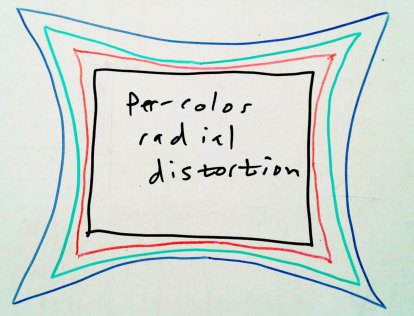 Per-color
radial
distortion